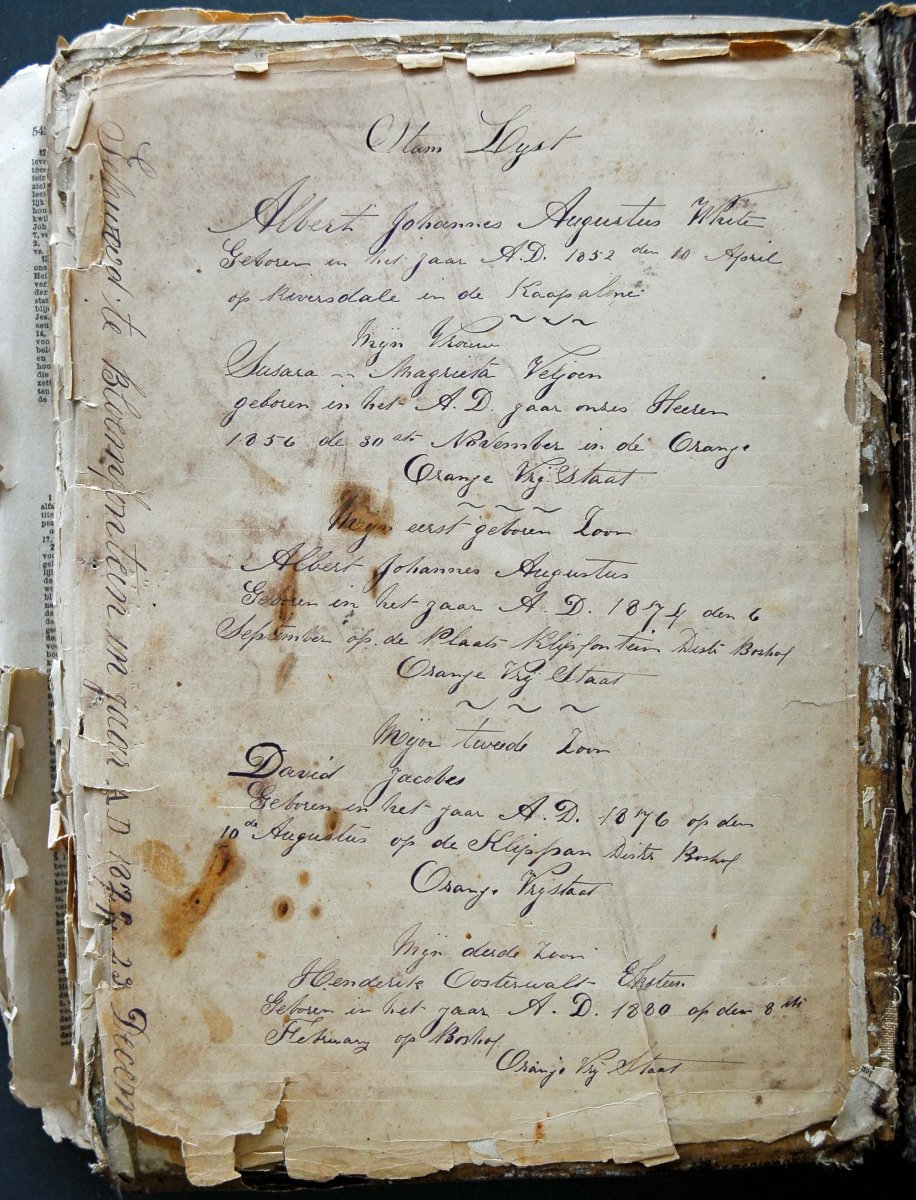 Stam Lyst
Albert Johannes Augustus White
Geboren in het jaar A.D. 1852 den 10 April
op Riversdale in de Kaap alone
Mijn Vrouw
Susara Magrieta Veljoen
geboren in het A.D. jaar onzes Heeren
1856 de 30 ste November in de Orange
Orange Vrij Staat
Mijn eerst geboren Zoon
Albert Johannes Augustus
Geboren in het jaar A.D. 1874 den 6
September op de Plaats Klipfontein Distr Boshof
Orange Vrij Staat
Mijn tweede Zoon
David Jacobes
Geboren in het jaar A.D. 1876 op den
10 de Augustus op de Klippan Distr Boshof
Orange Vrystaat
Mijn derde Zoon
Henderik Oosterwalt Eksteen
Geboren in het jaar A.D. 1880 op den 8 ste
February op Boshof
Orange Vrij Staat
Getrouwd te Bloemfontein in jaar A.D. 1872 23 Decem